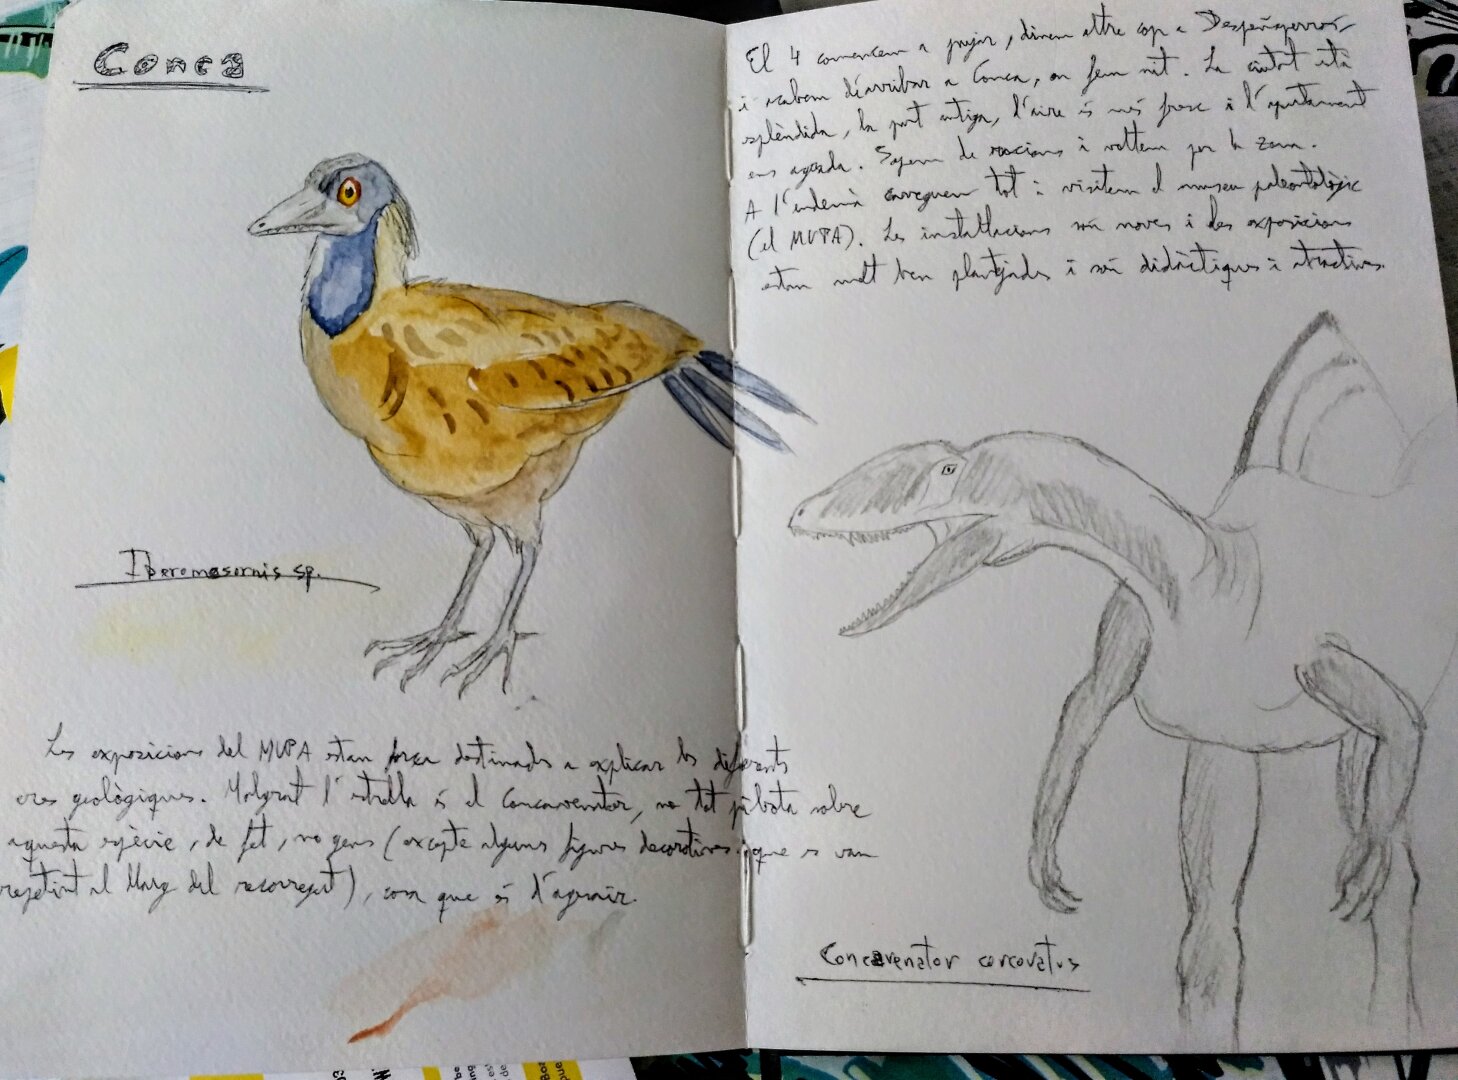 Conca
Iberomesornis sp.
Les exposicions del MUPA estan força destinades a explicar les diferents
eres geològiques. Malgrat l'estrella és el Concavenator, no tot pivota sobre
aquesta espècie, de fet, no gens (excepte algunes figures decoratives que es van
repetint al llarg del recorregut), cosa que és d'agrair.
El 4 comencem a pujar, dinem altre cop a Despeñaperros,
i acabem d'arribar a Conca, on fem nit. La ciutat és
esplèndida, la part antiga, l'aire és més fresc i l'apartament
ens agrada. Sopem de racions i voltem per la zona.
A l'endemà carreguem tot i visitem el museu paleontològic
(el MUPA). Les instal·lacions són noves i les exposicions
estan molt ben plantejades i són didàctiques i atractives.
Concavenator corcovatus